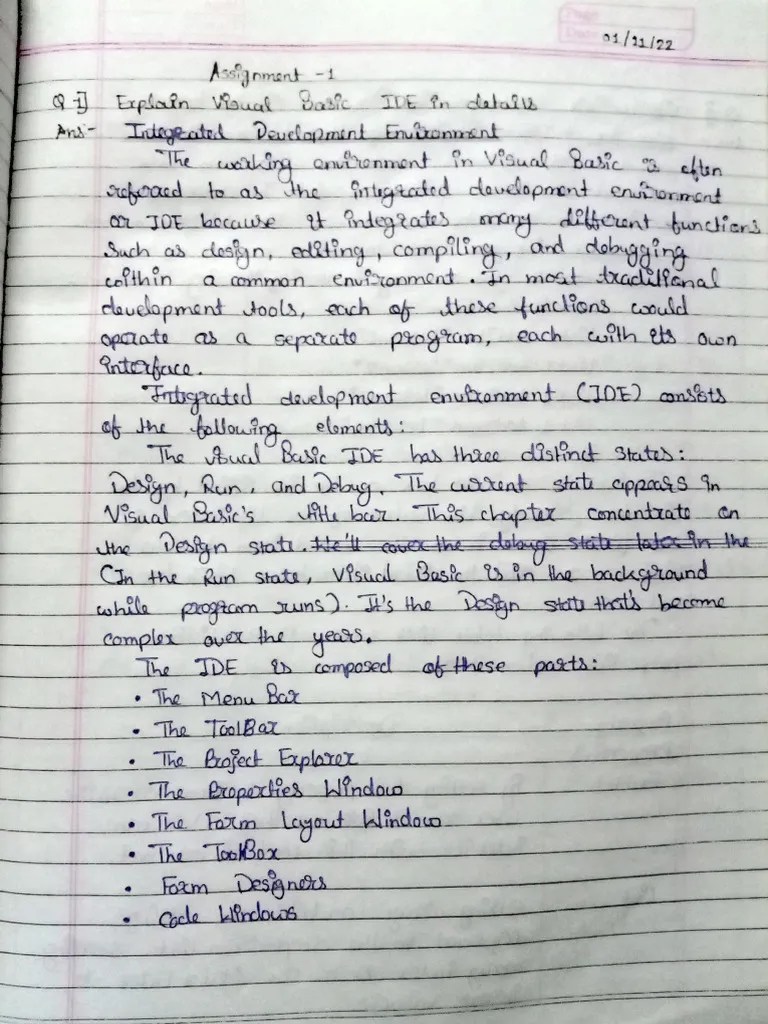 01/11/22
Assignment -1
Q-1] Explain Visual Basic IDE in details
Ans- Integrated Development Environment
The working environment in Visual Basic is often
referred to as the integrated development environment
or IDE because it integrates many different functions
such as design, editing, compiling, and debugging
within a common environment. In most traditional
development tools, each of these functions would
operate as a separate program, each with its own
interface.
Integrated development environment (IDE) consists
of the following elements:
The visual Basic IDE has three distinct states:
Design, Run, and Debug. The current state appears in
Visual Basic's title bar. This chapter concentrate on
the Design state. We'll cover the debug state later in the
(In the Run state, Visual Basic is in the background
while program runs). It's the Design state that's become
complex over the years.
The IDE is composed of these parts:
• The Menu Bar
• The ToolBar
• The Project Explorer
• The Properties Window
• The Form Layout Window
• The ToolBox
• Form Designers
• Code Windows